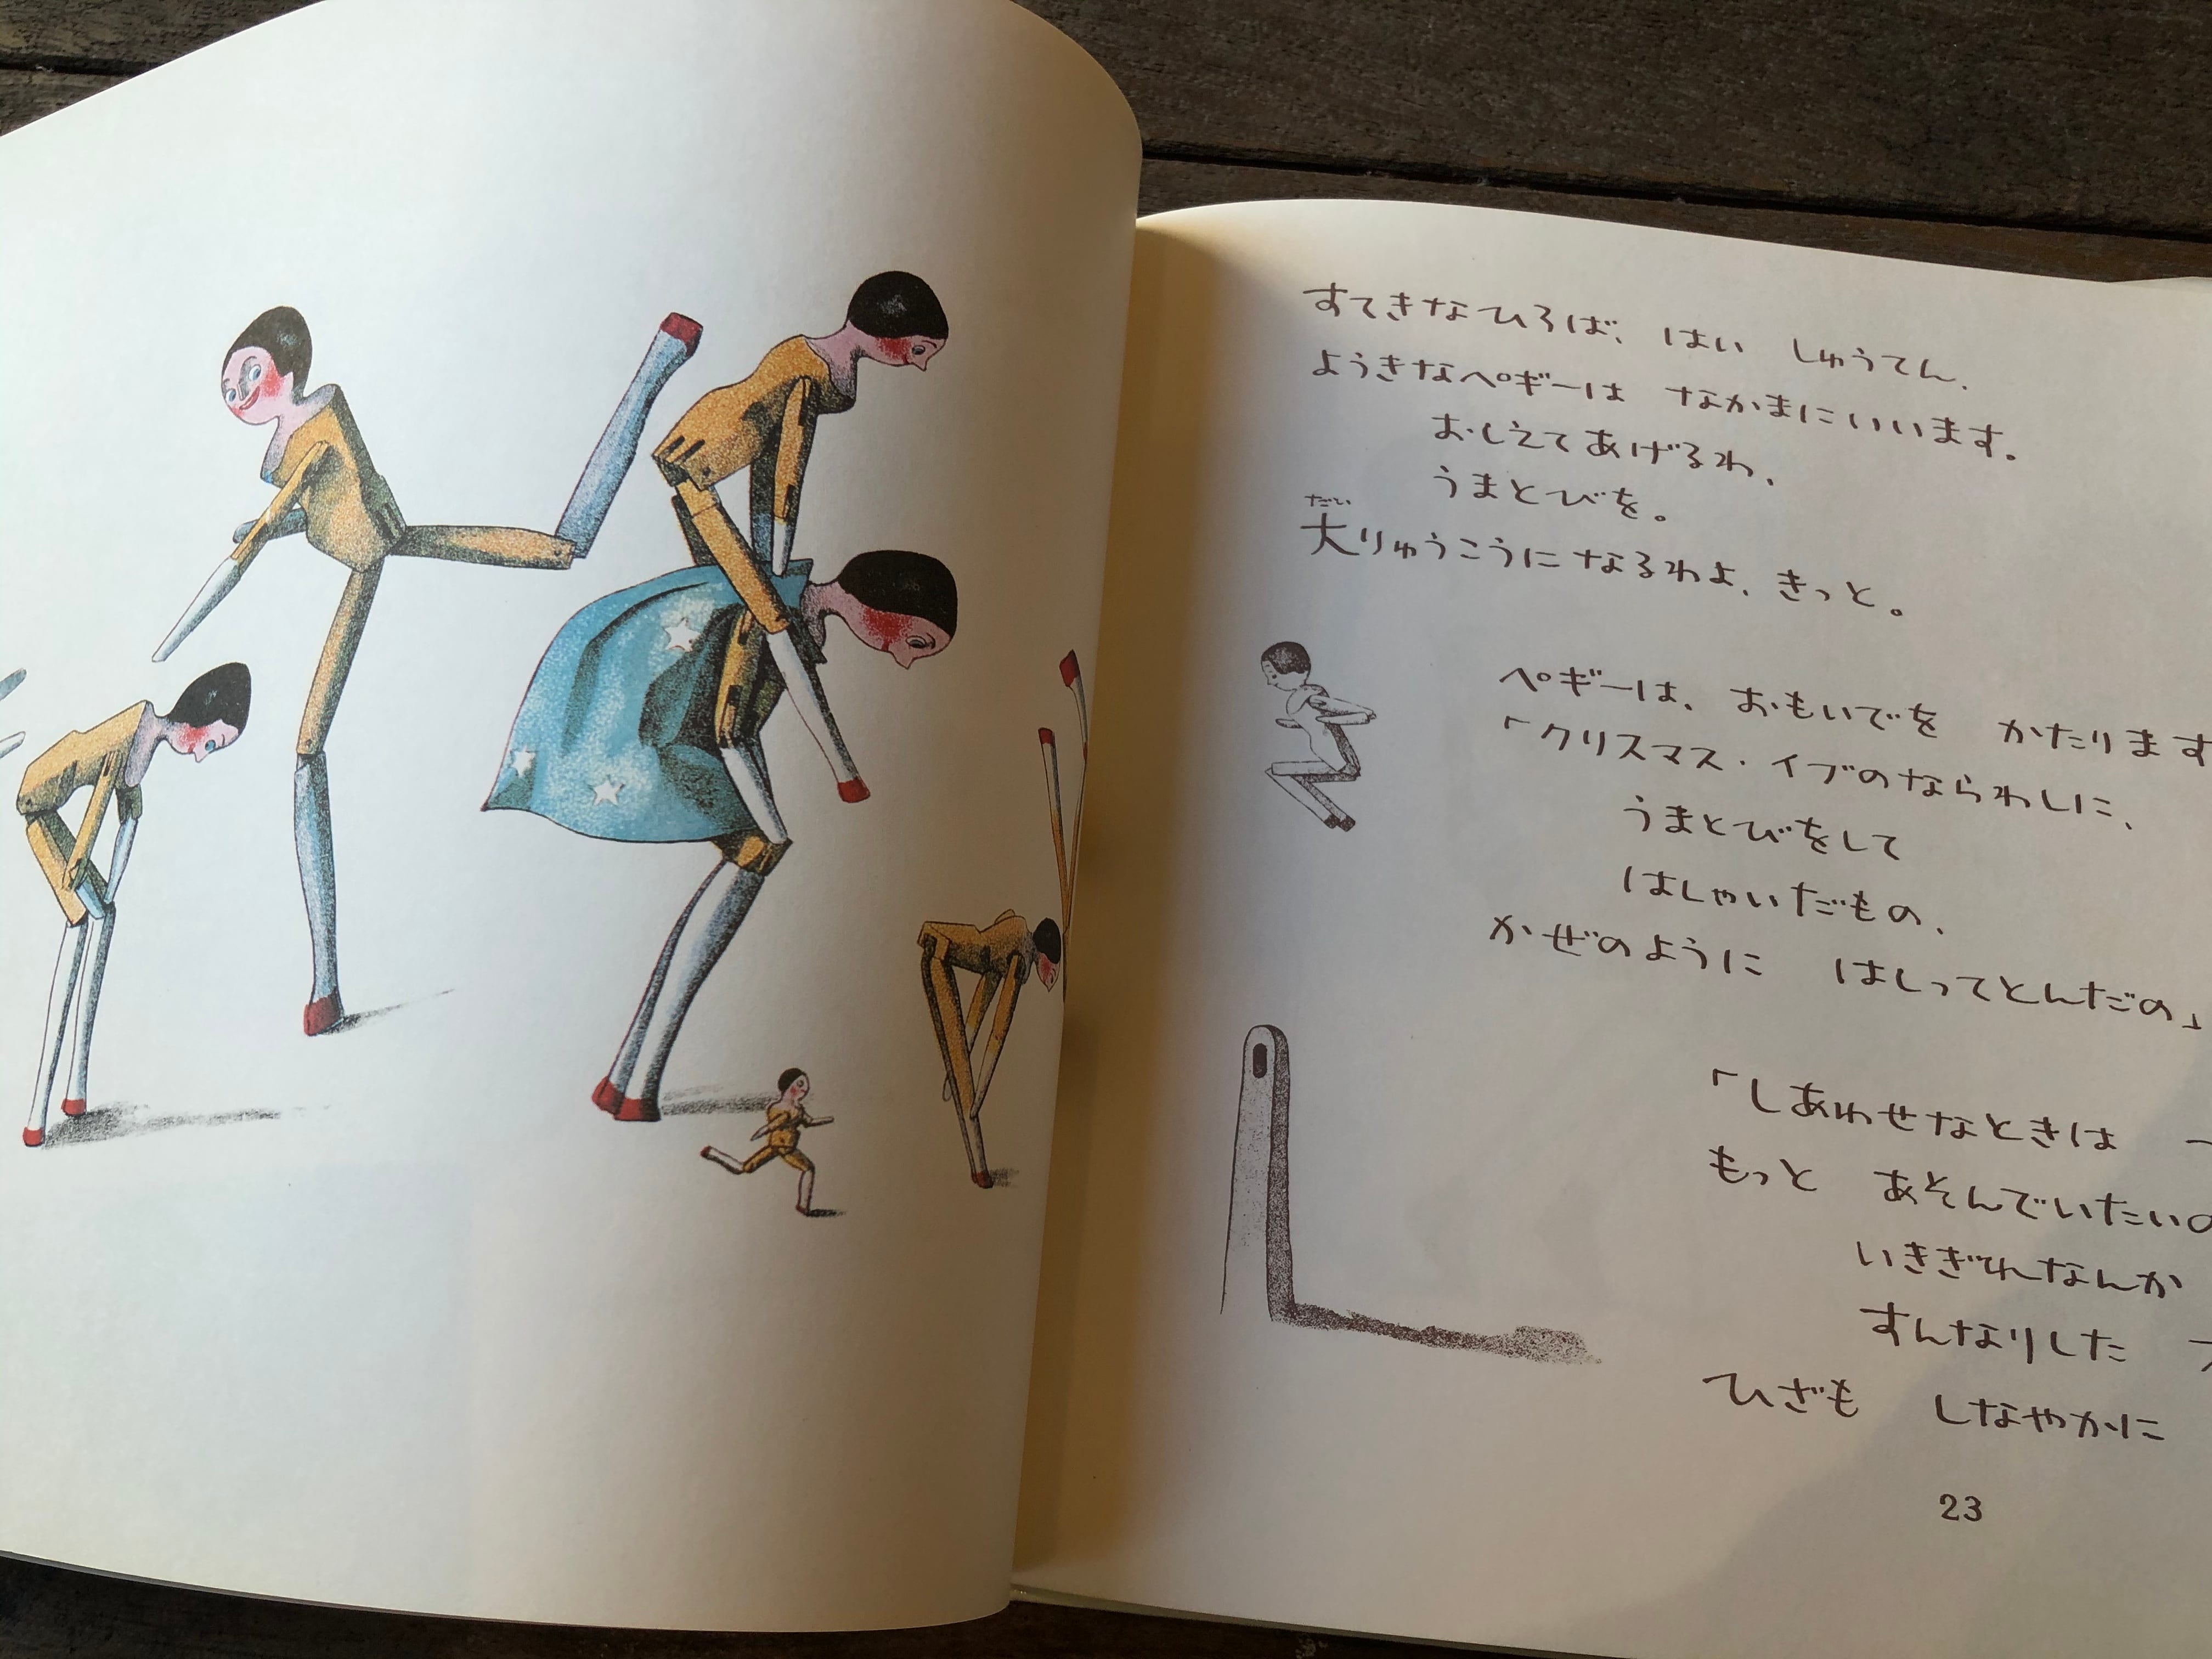 すてきなひろば、 はい しゅうてん、
ようきなペギーは なかまにいいます。
おしえてあげるわ、
うまとびを。
だい
大りゅうこうになるわよ、きっと。
ペギーは、おもいでを かたります
「クリスマス・イブのならわしに、
うまとびをして
はしゃいだもの、
かぜのように はしってとんだの」
「しあわせなときは
もっと あそんでいたいの
いきぎれなんか
すんなりした
ひざも しなやかに
23